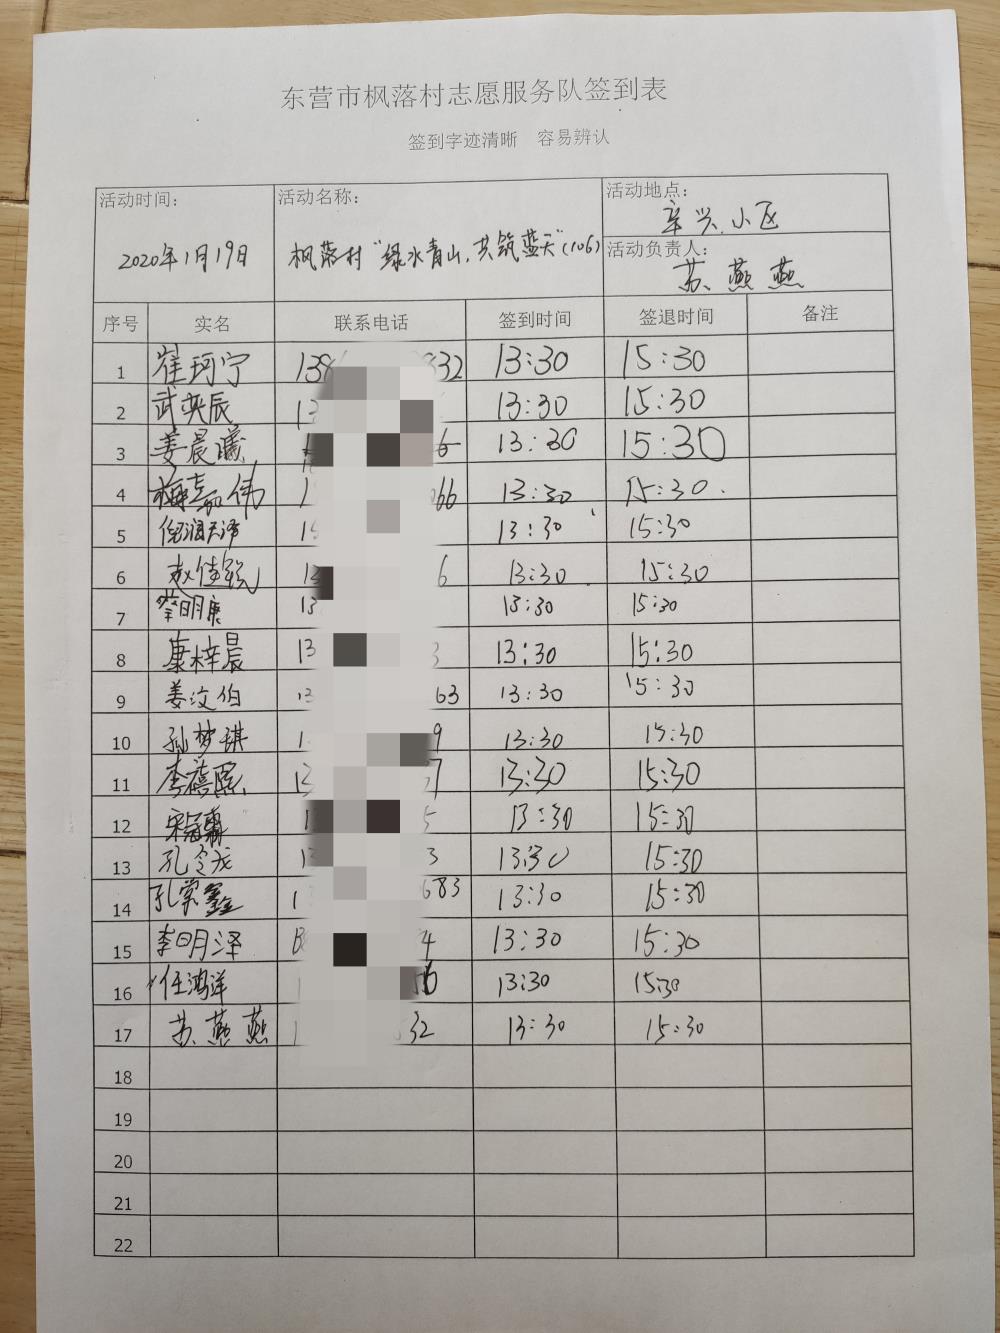 东营市枫落村志愿服务队签到表
签到字迹清晰 容易辨认
活动时间: 2020年1月19日
活动名称: 枫落村“绿水青山,共筑蓝天”(106)
活动地点: 辛兴小区
活动负责人: 苏燕燕
序号 实名 联系电话 签到时间 签退时间 备注
1 崔珂宁 138 832 13:30 15:30
2 武奕辰 13 13:30 15:30
3 姜晨曦 6 13:30 15:30
4 梅嘉伟 1 066 13:30 15:30
5 倪润天泽 15 13:30 15:30
6 赵佳锐 13 6 13:30 15:30
7 蔡明康 13 13:30 15:30
8 康梓晨 13 3 13:30 15:30
9 姜汶伯 13 63 13:30 15:30
10 孙梦琪 1 9 13:30 15:30
11 李蓓熙 13 7 13:30 15:30
12 宋冠霖 1 5 13:30 15:30
13 孔令龙 13 3 13:30 15:30
14 孔常鑫 1 683 13:30 15:30
15 李明泽 4 13:30 15:30
16 任鸿洋 1 56 13:30 15:30
17 苏燕燕 1 32 13:30 15:30
18
19
20
21
22